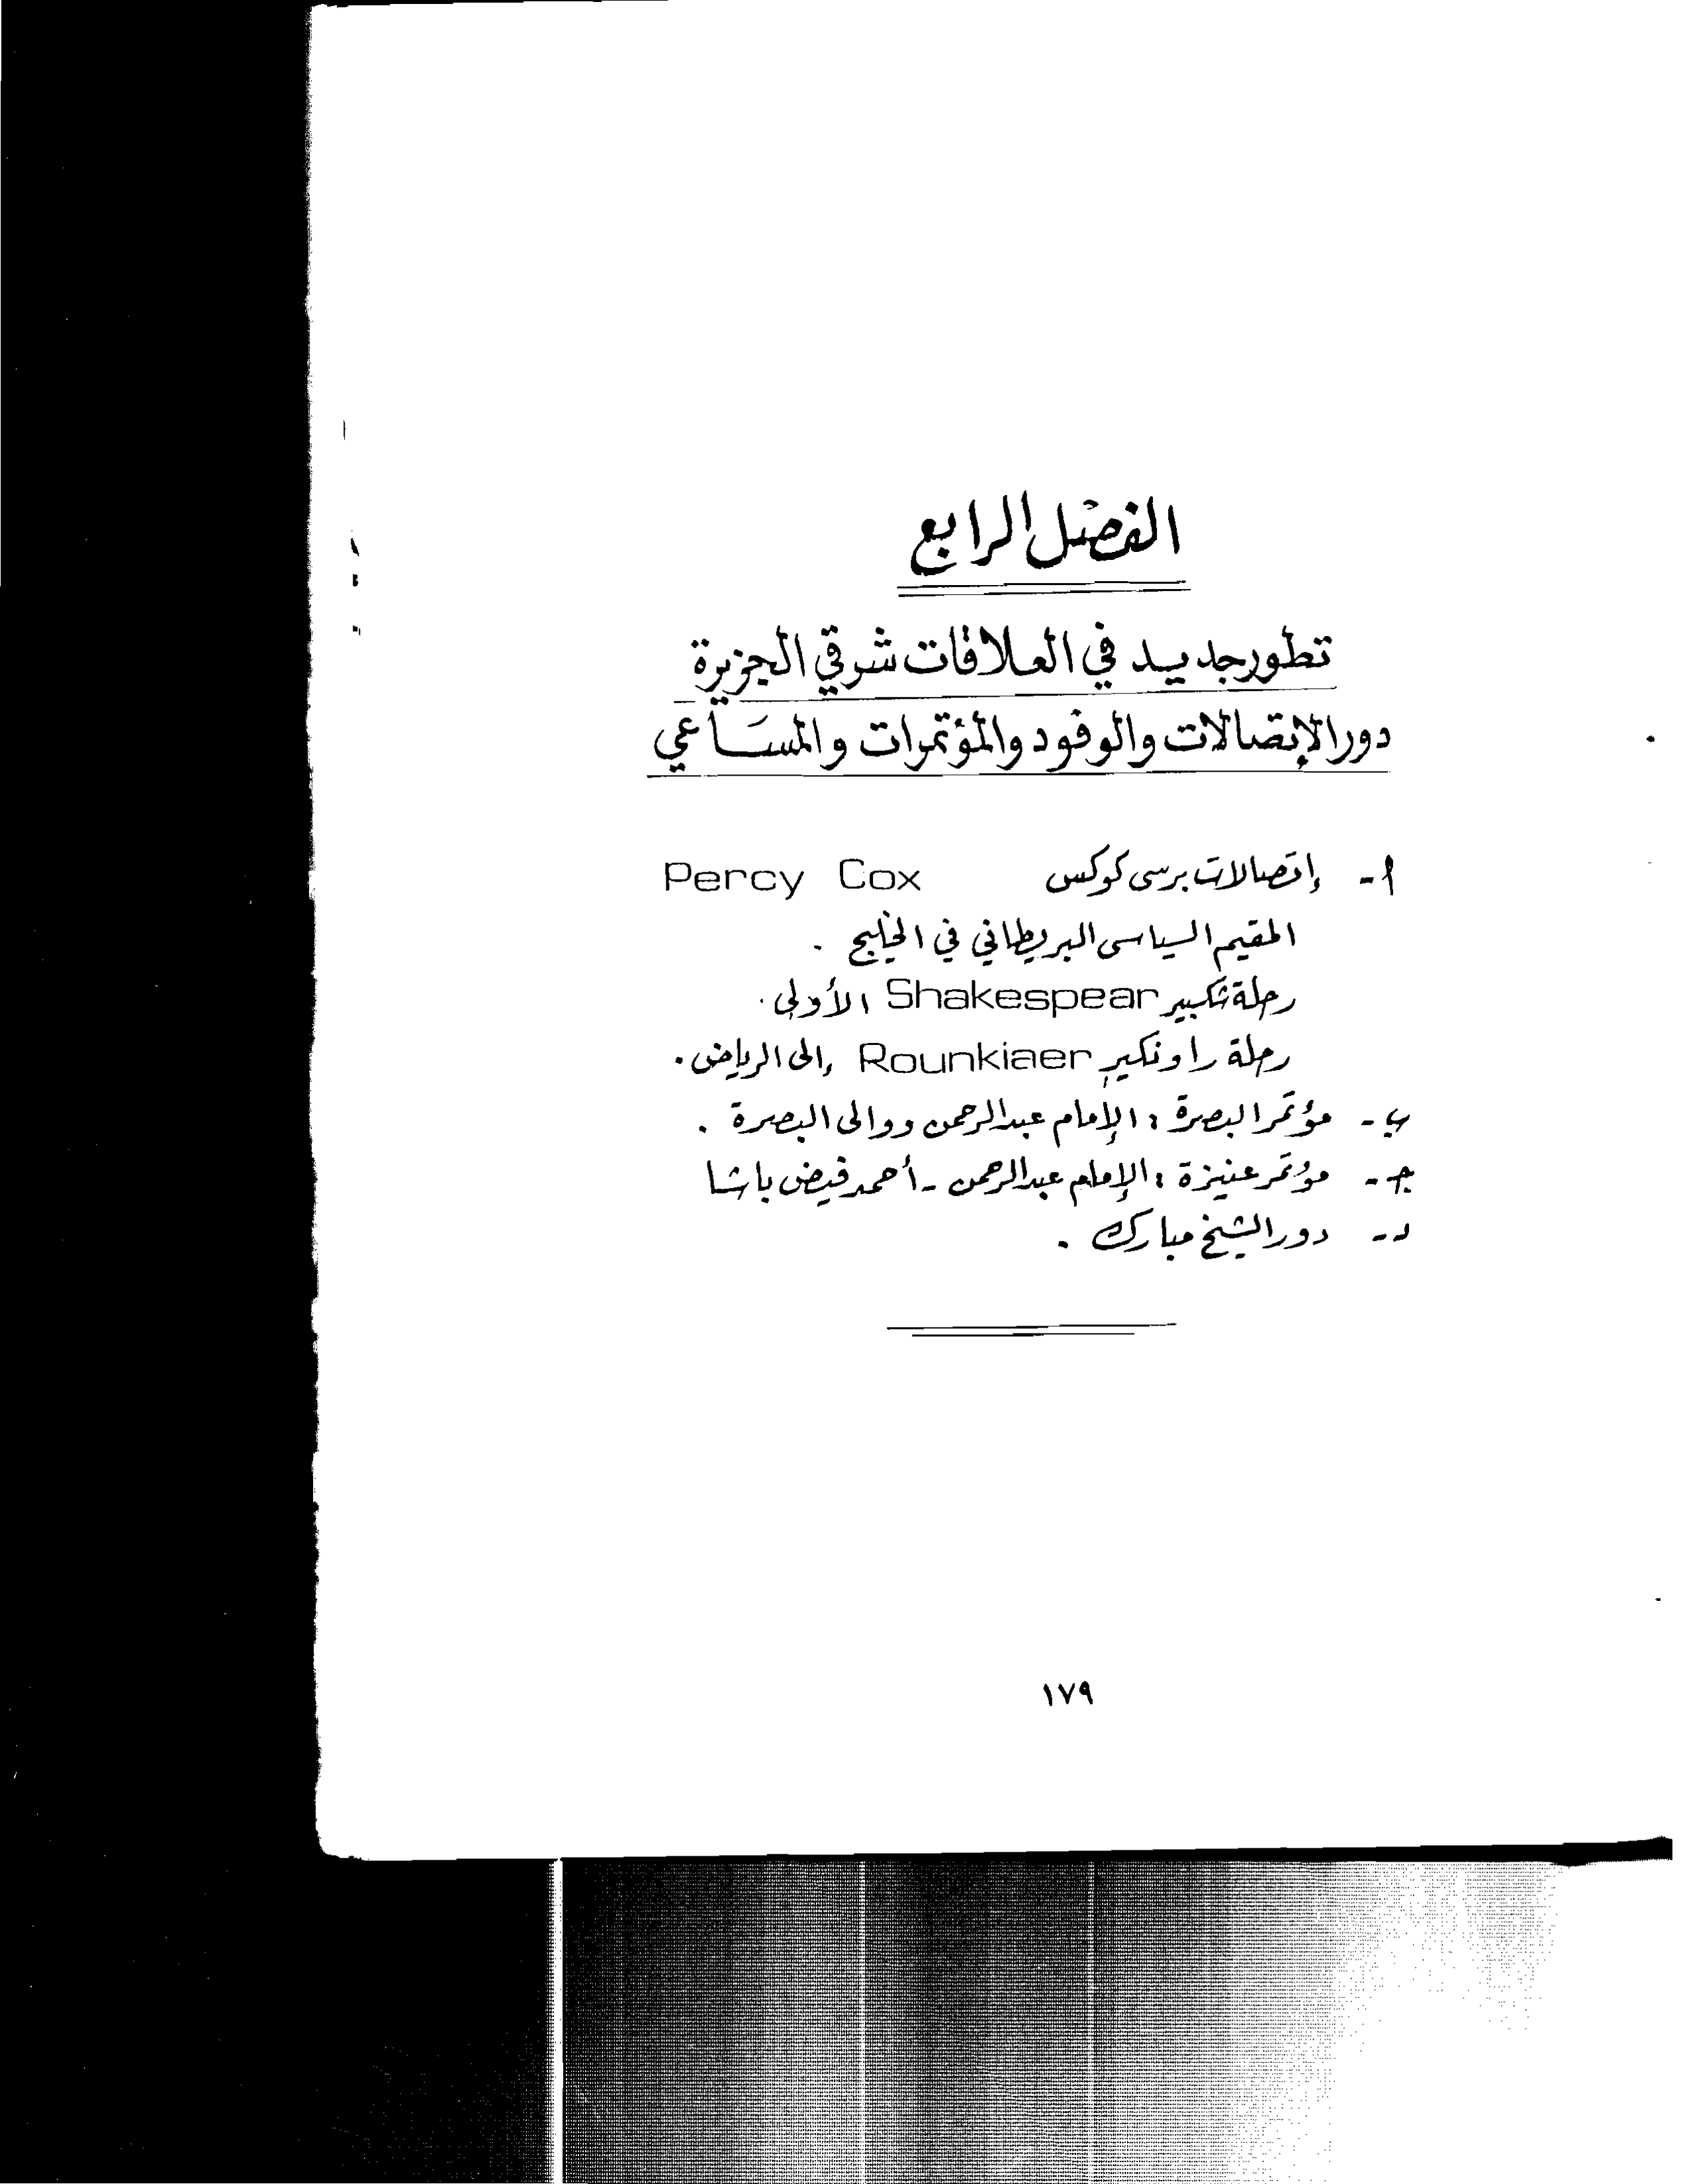 الفصل الرابع
تطور جديد في العلاقات شرقي الجزيرة
دور الإتصالات والوفود والمؤتمرات والمساعي
أ - إتصالات برسى كوكس Percy Cox
المقيم السياسى البريطاني في الخليج .
رحلة شكبير Shakespear الأولى .
رحلة راونكير Rounkiaer إلى الرياض .
ب - مؤتمر البصرة : الإمام عبدالرحمن ووالى البصرة .
جـ - مؤتمر عنيزة : الإمام عبدالرحمن - أحمد فيضى باشا
د - دور الشيخ مبارك .
١٧٩